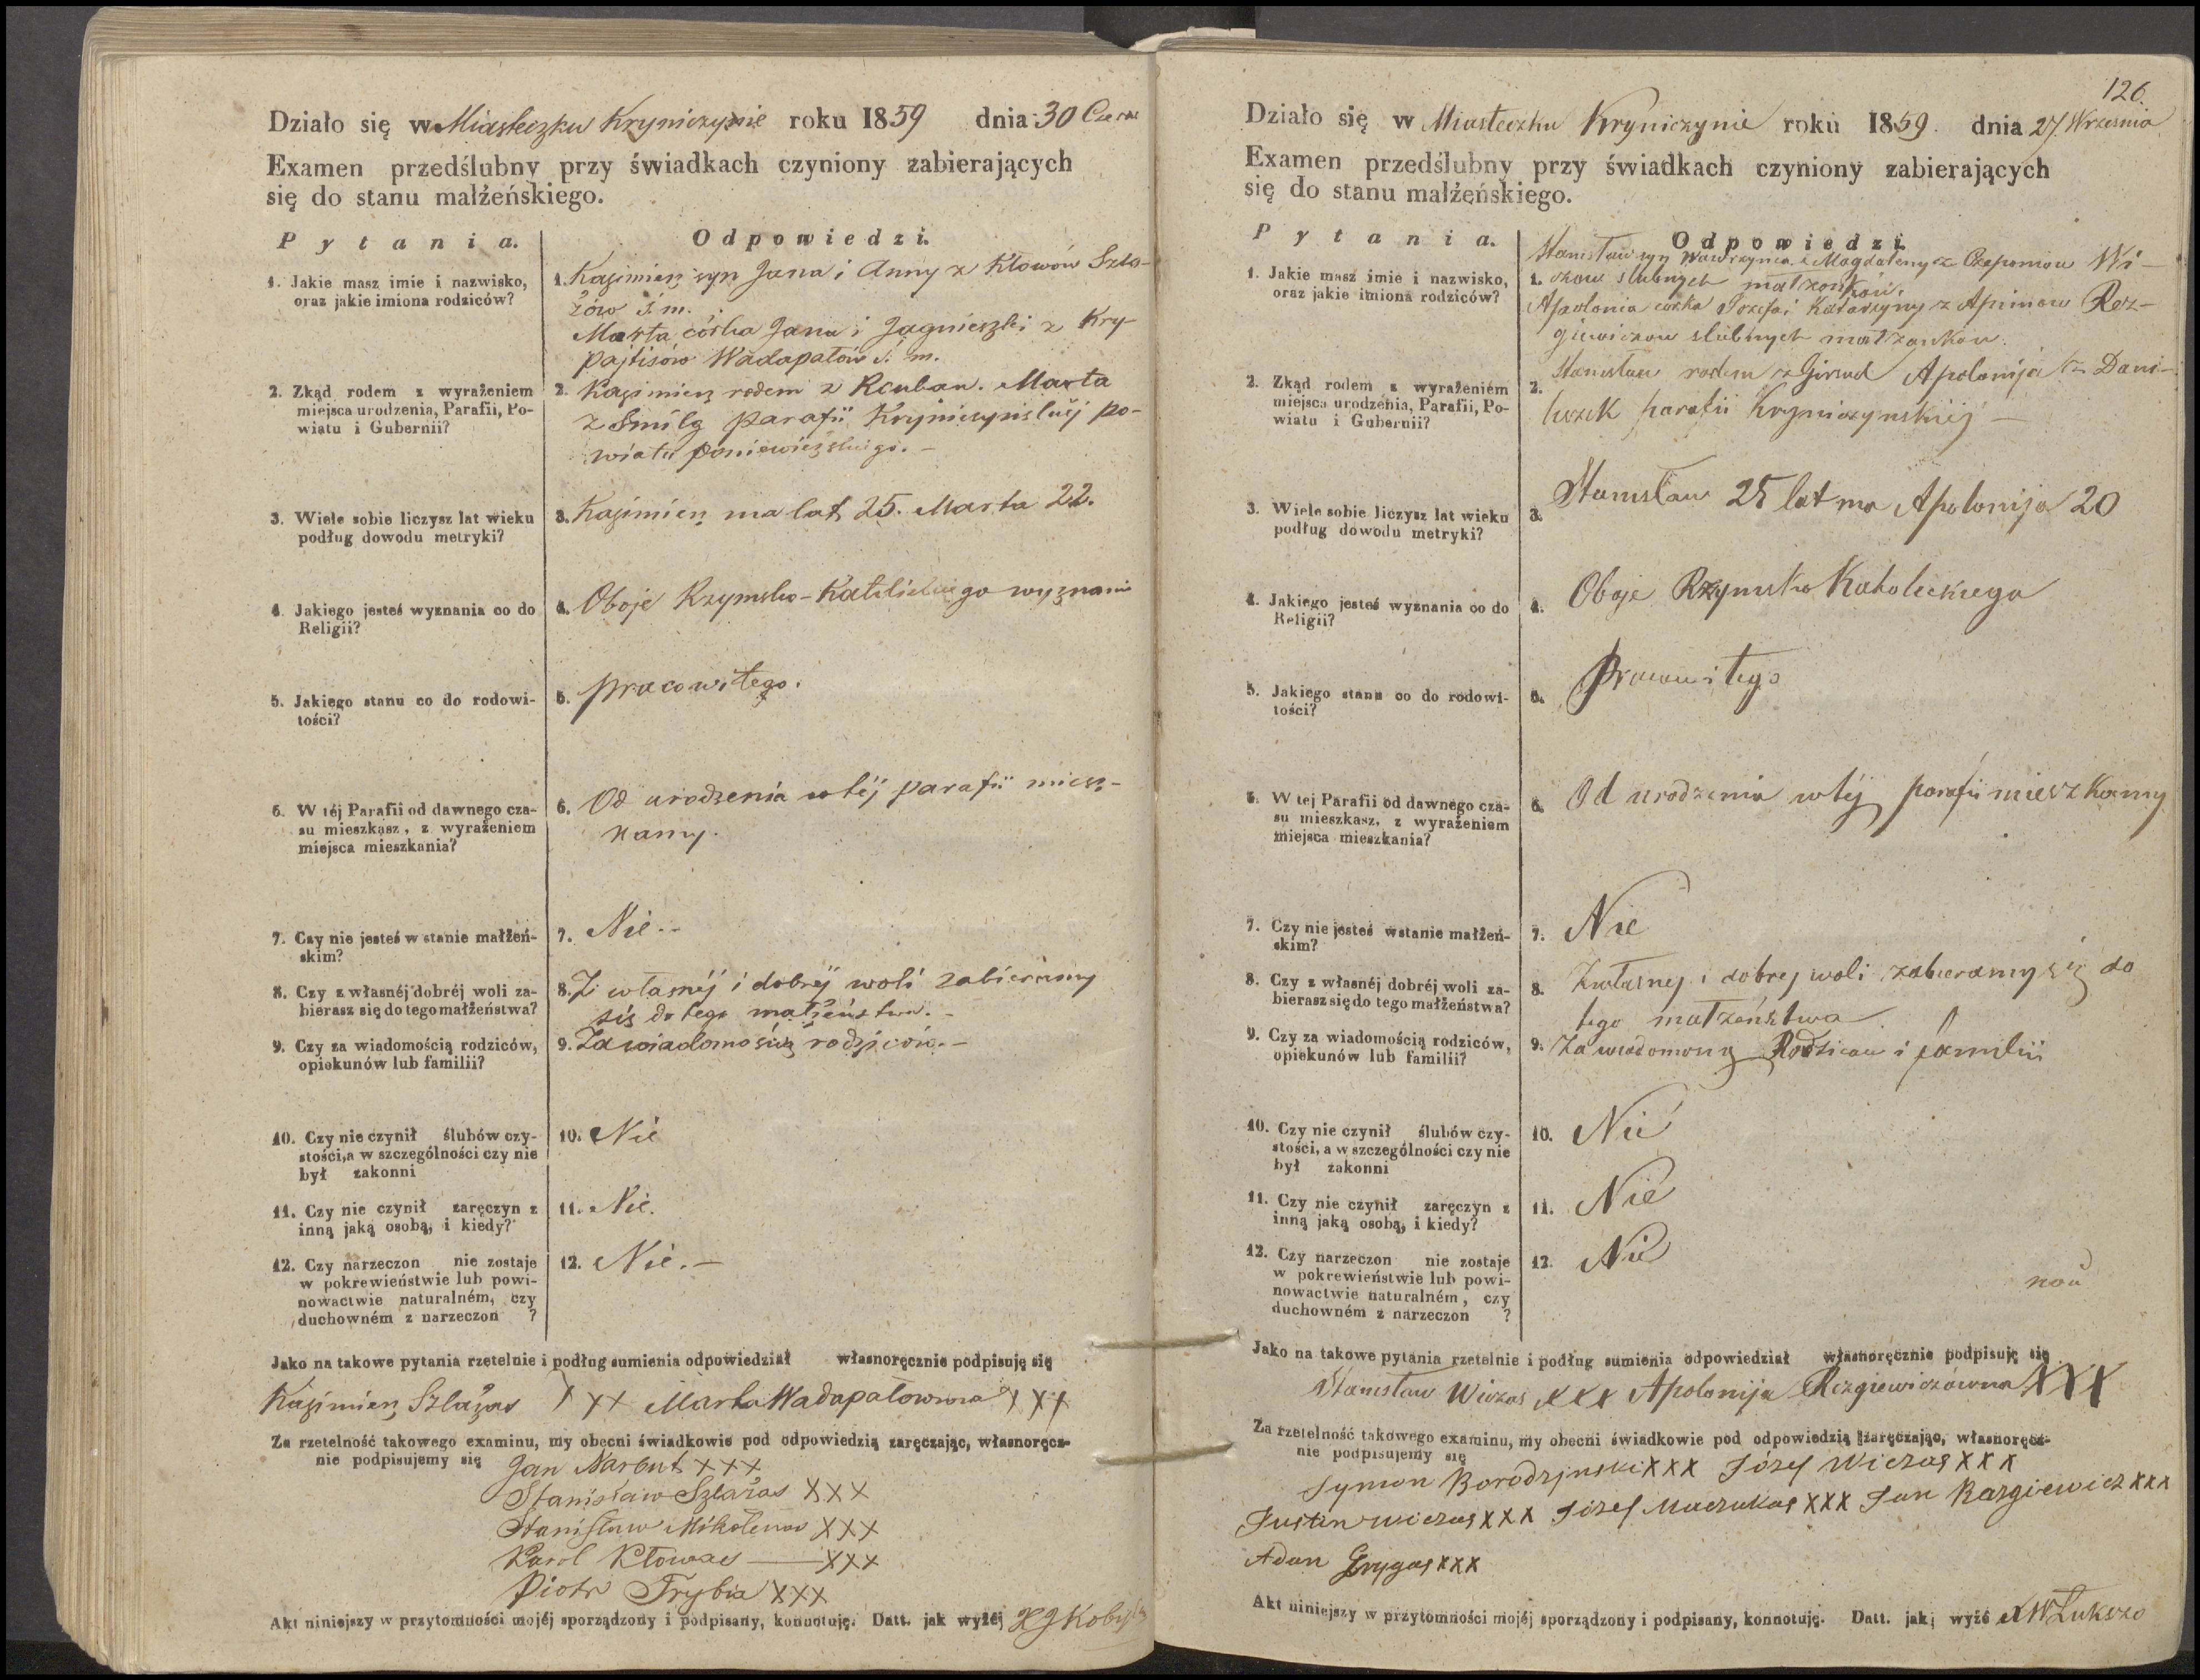 Działo się w Miasteczku Kryniczynie roku 1859 dnia 30
Examen przedślubny przy świadkach czyniony zabierających
się do stanu małżeńskiego.
Pytania. Odpowiedzi.
1. Jakie masz imie i nazwisko,
oraz jakie imiona rodziców?
1. Kazimierz syn Jana i Anny z Kłowów Szła-
żów ś. m.
Marta córka Jana i Jagnieszki z Kry-
pajtisów Wadapałów ś. m.
2. Zkąd rodem z wyrażeniem
miejsca urodzenia, Parafii, Po-
wiatu i Gubernii?
2. Kazimierz rodem z Marta
z Smilg parafii Kryniczyńskiéj po-
wiatu poniewiezskiego. -
3. Wiele sobie liczysz lat wieku
podług dowodu metryki?
3. Kazimierz ma lat 25. Marta 22.
4. Jakiego jesteś wyznania co do
Religii?
4. Oboje Rzymsko-Katolickiego wyznania
5. Jakiego stanu co do rodowi-
tości?
5. pracowitego.
6. W téj Parafii od dawnego cza-
su mieszkasz, z wyrażeniem
miejsca mieszkania?
6. Od urodzenia w téj parafii miesz-
kamy.
7. Czy nie jesteś w stanie małżeń-
skim?
7. Nie. -
8. Czy z własnéj dobréj woli za-
bierasz się do tego małżeństwa?
8. Z własnéj i dobréj woli zabieramy
się do tego małżeństwa. -
9. Czy za wiadomością rodziców,
opiekunów lub familii?
9. Za wiadomością rodziców. -
10. Czy nie czynił ślubów czy-
stości, a w szczególności czy nie
był zakonni
10. Nie
11. Czy nie czynił zaręczyn z
inną jaką osobą, i kiedy?
11. Nie.
12. Czy narzeczon nie zostaje
w pokrewieństwie lub powi-
nowactwie naturalném, czy
duchowném z narzeczon ?
12. Nie. -
Jako na takowe pytania rzetelnie i podług sumienia odpowiedział własnoręcznie podpisuję się
Kazimierz Szlażas XXX Marta Wadapałowna XXX
Za rzetelność takowego examinu, my obecni świadkowie pod odpowiedzią zaręczając, własnoręcz-
nie podpisujemy się Jan Narbut XXX
Stanisław Szlażas XXX
Stanisław XXX
Karol Kłowas XXX
Piotr Trybia XXX
Akt niniejszy w przytomności mojéj sporządzony i podpisany, konnotuję. Datt. jak wyżéj
126.
Działo się w Miasteczku Kryniczynie roku 1859. dnia 27 Września
Examen przedślubny przy świadkach czyniony zabierających
się do stanu małżeńskiego.
Pytania. Odpowiedzi.
1. Jakie masz imie i nazwisko,
oraz jakie imiona rodziców?
Stanisław syn Wawrzynca i Magdaleny z Czeponiow Wi-
1. czow slubnych małzonków.
Apolonia córka Józefa i Katarzyny z Rez-
giewiczow slubnych małzonkow.
2. Zkąd rodem z wyrażeniem
miejsca urodzenia, Parafii, Po-
wiatu i Gubernii?
2. Stanisław rodem z Girsud Apolonija z Dani-
parafii Kryniczynskiéj -
3. Wiele sobie liczysz lat wieku
podług dowodu metryki?
3. Stanisław 25 lat ma Apolonija 20
4. Jakiego jesteś wyznania co do
Religii?
4. Oboje Rzymsko Katoleckiego
5. Jakiego stanu co do rodowi-
tości?
5. Pracowitego
6. W tej Parafii od dawnego cza-
su mieszkasz, z wyrażeniem
miejsca mieszkania?
6. Od urodzenia w téj parafii mieszkamy
7. Czy nie jesteś wstanie małżeń-
skim?
7. Nie
8. Czy z własnéj dobréj woli za-
bierasz się do tego małżeństwa?
8. Zwłasnej i dobrej woli zabieramy się do
tego małzeństwa.
9. Czy za wiadomością rodziców,
opiekunów lub familii?
9. Za wiadomoną Rodzicow i familii
10. Czy nie czynił ślubów czy-
stości, a w szczególności czy nie
był zakonni
10. Nie
11. Czy nie czynił zaręczyn z
inną jaką osobą, i kiedy?
11. Nie
12. Czy narzeczon nie zostaje
w pokrewieństwie lub powi-
nowactwie naturalném, czy
duchowném z narzeczon ?
12. Nie
Jako na takowe pytania rzetelnie i podług sumienia odpowiedział własnoręcznie podpisuję się
Stanisław Wiczas XXX Apolonija Rezgiewiczowna XXX
Za rzetelność takowego examinu, my obecni świadkowie pod odpowiedzią zaręczając, własnoręcz-
nie podpisujemy się
Symon Borodzjnski XXX Józef Wiczas XXX
Justin Wiczas XXX Józef Maczukas XXX Jan Razgiewicz XXX
Adam Grygas XXX
Akt niniejszy w przytomności mojéj sporządzony i podpisany, konnotuję. Datt. jak wyżé